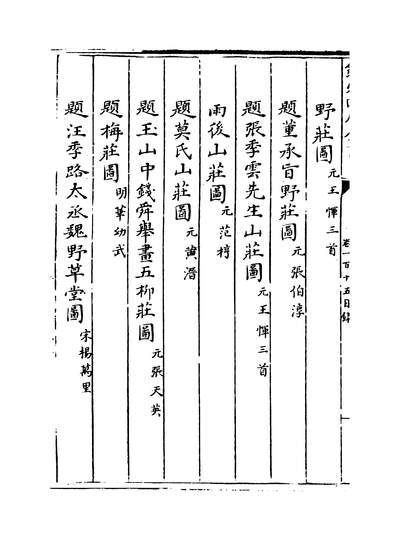 野莊圖元王惲三首
題董承旨野莊圖元張伯淳
題張季雲先生山莊圖元王惲三首
雨後山莊圖元范梈
題莫氏山莊圖元黄溍
題玉山中錢舜舉畫五柳莊圖元張天英
題梅莊圖明華幼武
題汪季路太丞魏野草堂圖宋楊萬里
卷一百十五目録